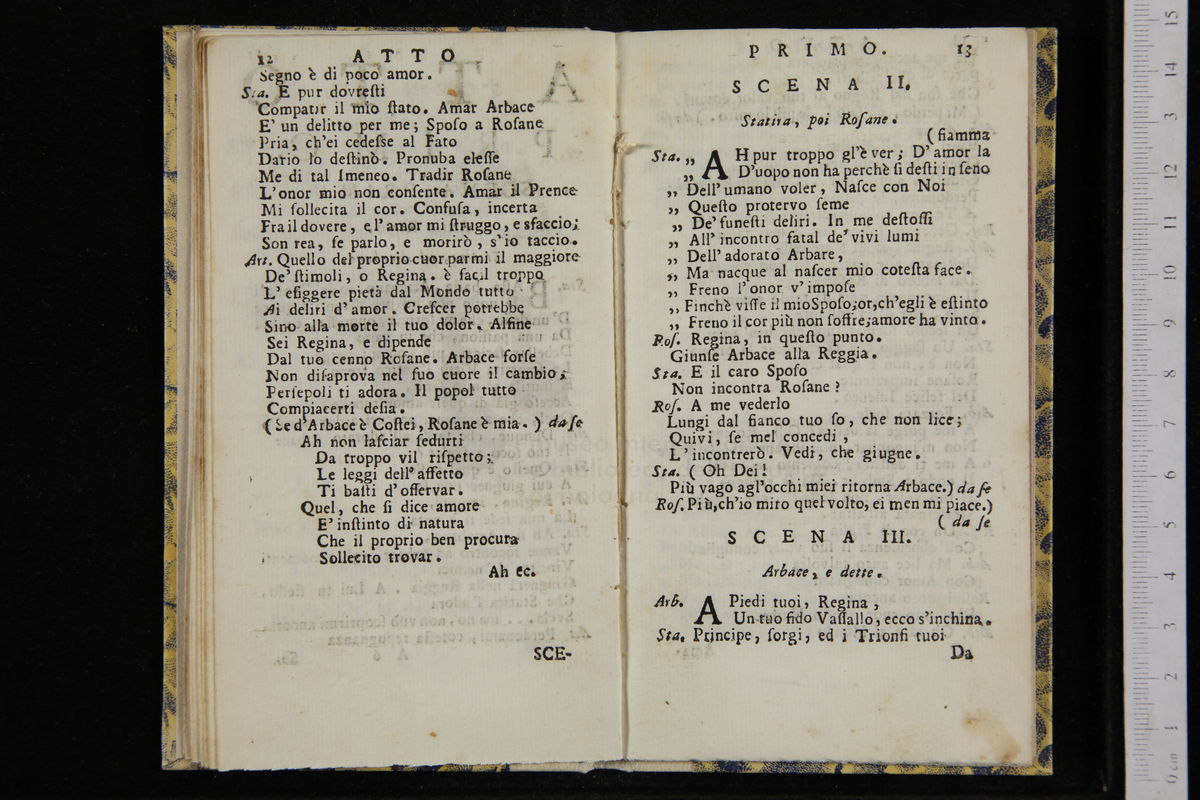 12 ATTO
Segno è di poco amor.
Sta. E pur dovreſti
Compatir il mio ſtato. Amar Arbace
E' un delitto per me; Spoſo a Roſane
Pria, ch'ei cedeſse al Fato
Dario lo deſtinò. Pronuba eleſſe
Me di tal Imeneo. Tradir Roſane
L'onor mio non conſente. Amar il Prence
Mi ſollecita il cor. Confuſa, incerta
Fra il dovere, e l'amor mi ſtruggo, e sfaccio;
Son rea, ſe parlo, e morirò, s'io taccio.
Art. Quello del proprio cuor parmi il maggiore
De' ſtimoli, o Regina. è facil troppo
L' eſiggere pietà dal Mondo tutto
Ai deliri d'amor. Creſcer potrebbe
Sino alla morte il tuo dolor. Alfine
Sei Regina, e dipende
Dal tuo cenno Roſane. Arbace forſe
Non diſaprova nel ſuo cuore il cambio;
Perſepoli ti adora. Il popol tutto
Compiacerti deſia.
(Se d'Arbace è Coſtei, Roſane è mia.) da ſe
Ah non laſciar ſedurti
Da troppo vil riſpetto;
Le leggi dell' affetto
Ti baſti d'offervar.
Quel, che ſi dice amore
E' inſtinto di natura
Che il proprio ben procura
Sollecito trovar.
Ah ec.
SCE-
PRIMO. 13
SCENA II.
Statira, poi Roſane.
(fiamma
Sta. „ AH pur troppo gl'è ver; D'amor la
„ D'uopo non ha perchè ſi deſti in ſeno
„ Dell' umano voler, Naſce con Noi
„ Queſto protervo ſeme
„ De' funeſti deliri. In me deſtoſſi
„ All' incontro fatal de' vivi lumi
„ Dell' adorato Arbare,
„ Ma nacque al naſcer mio coteſta face.
„ Freno l'onor v'impoſe
„ Finchè viſſe il mio Spoſo; or, ch'egli è eſtinto
„ Freno il cor più non ſoffre; amore ha vinto.
Roſ. Regina, in queſto punto.
Giunſe Arbace alla Reggia.
Sta. E il caro Spoſo
Non incontra Roſane?
Roſ. A me vederlo
Lungi dal fianco tuo ſo, che non lice;
Quivi, ſe mel concedi,
L'incontrerò. Vedi, che giugne.
Sta. (Oh Dei!
Più vago agl'occhi miei ritorna Arbace.) da ſe
Roſ. Più, ch'io miro quel volto, ei men mi piace.)
(da ſe
SCENA III.
Arbace, e dette.
Arb. A Piedi tuoi, Regina,
Un tuo fido Vaſſallo, ecco s'inchina.
Sta. Principe, ſorgi, ed i Trionfi tuoi
Da